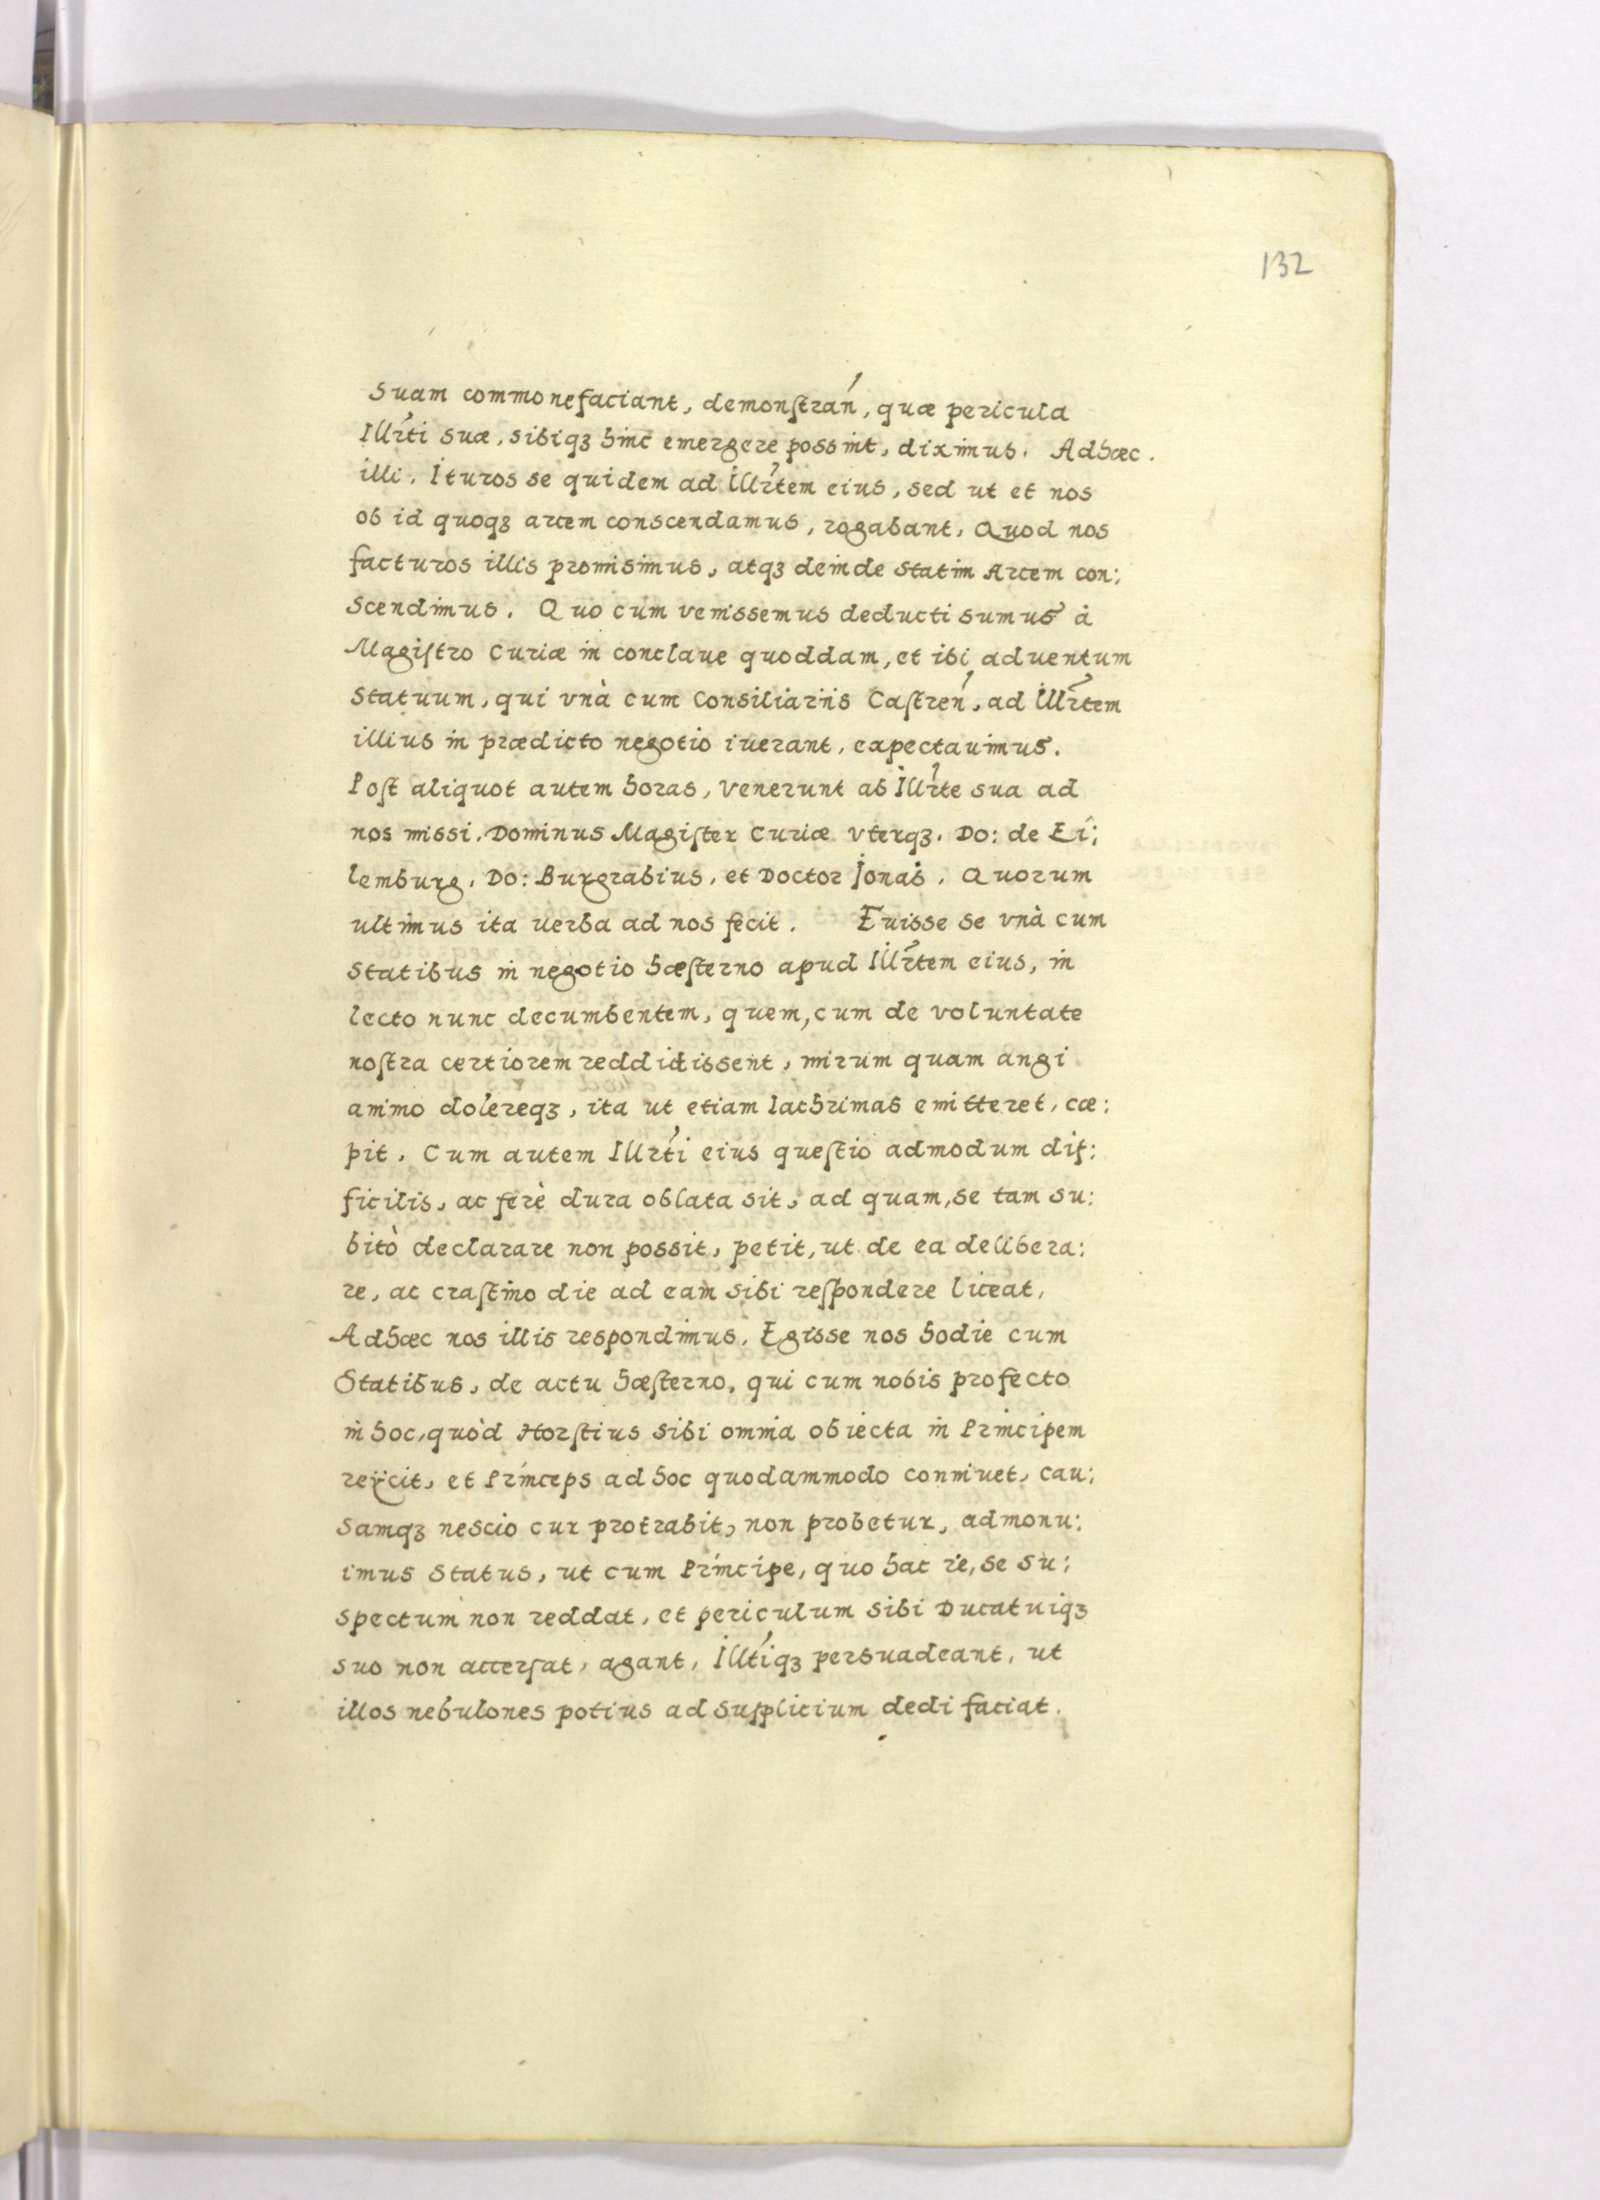 132
Suam commonefaciant, demonstran, quæ pericula
Illrti suæ, sibiqꝫ hinc emergere possint, diximus. Adhæc.
illi. Ituros se quidem ad Illrtem eius, sed ut et nos
ob id quoqꝫ arcem conscendamus, rogabant, Quod nos
facturos illis promisimus, atqꝫ deinde statim Arcem con:
scendimus. Quo cum venissemus deducti sumus à
Magistro Curiæ in conclaue quoddam, et ibi aduentum
statuum, qui vnà cum Consiliariis Castren, ad Illrtem
illius in prædicto negotio iuerant, expectauimus.
Post aliquot autem horas, venerunt ab Illrte sua ad
nos missi. Dominus Magister Curiæ vterqꝫ. Do: de Ei:
lemburg, Do: Burgrabius, et Doctor Jonas. Quorum
ultimus ita uerba ad nos fecit. Fuisse se vnà cum
statibus in negotio hæsterno apud Illrtem eius, in
lecto nunc decumbentem, quem, cum de voluntate
nostra certiorem reddidissent, mirum quam angi
animo dolereqꝫ, ita ut etiam lachrimas emitteret, cæ:
pit. Cum autem Illrti eius questio admodum dif:
ficilis, ac ferè dura oblata sit, ad quam, se tam su:
bitò declarare non possit, petit, ut de ea delibera:
re, ac crastino die ad eam sibi respondere liceat,
Adhæc nos illis respondimus. Egisse nos hodie cum
Statibus, de actu hæsterno, qui cum nobis profecto
in hoc, quòd Horstius sibi omnia obiecta in Principem
reijcit, et Princeps ad hoc quodammodo conniuet, cau:
samqꝫ nescio cur protrahit, non probetur, admonu:
imus status, ut cum Principe, quo hac re, se su:
spectum non reddat, et periculum sibi Ducatuiqꝫ
suo non accersat, agant, Illtiqꝫ persuadeant, ut
illos nebulones potius ad supplicium dedi faciat.